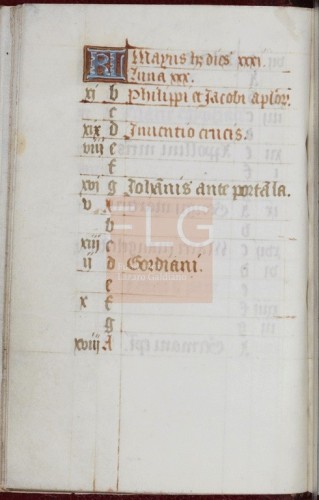 KL Mayus hꝫ dies xxxi.
luna xxx.
xi b Philippi et Jacobi aplorꝫ.
c
xix d Inuentio crucis.
viij e
f
xvi g Johānis ante portā la.
v A
b
xiij c
ij d Gordiani.
e
x f
g
xviij A
FLG